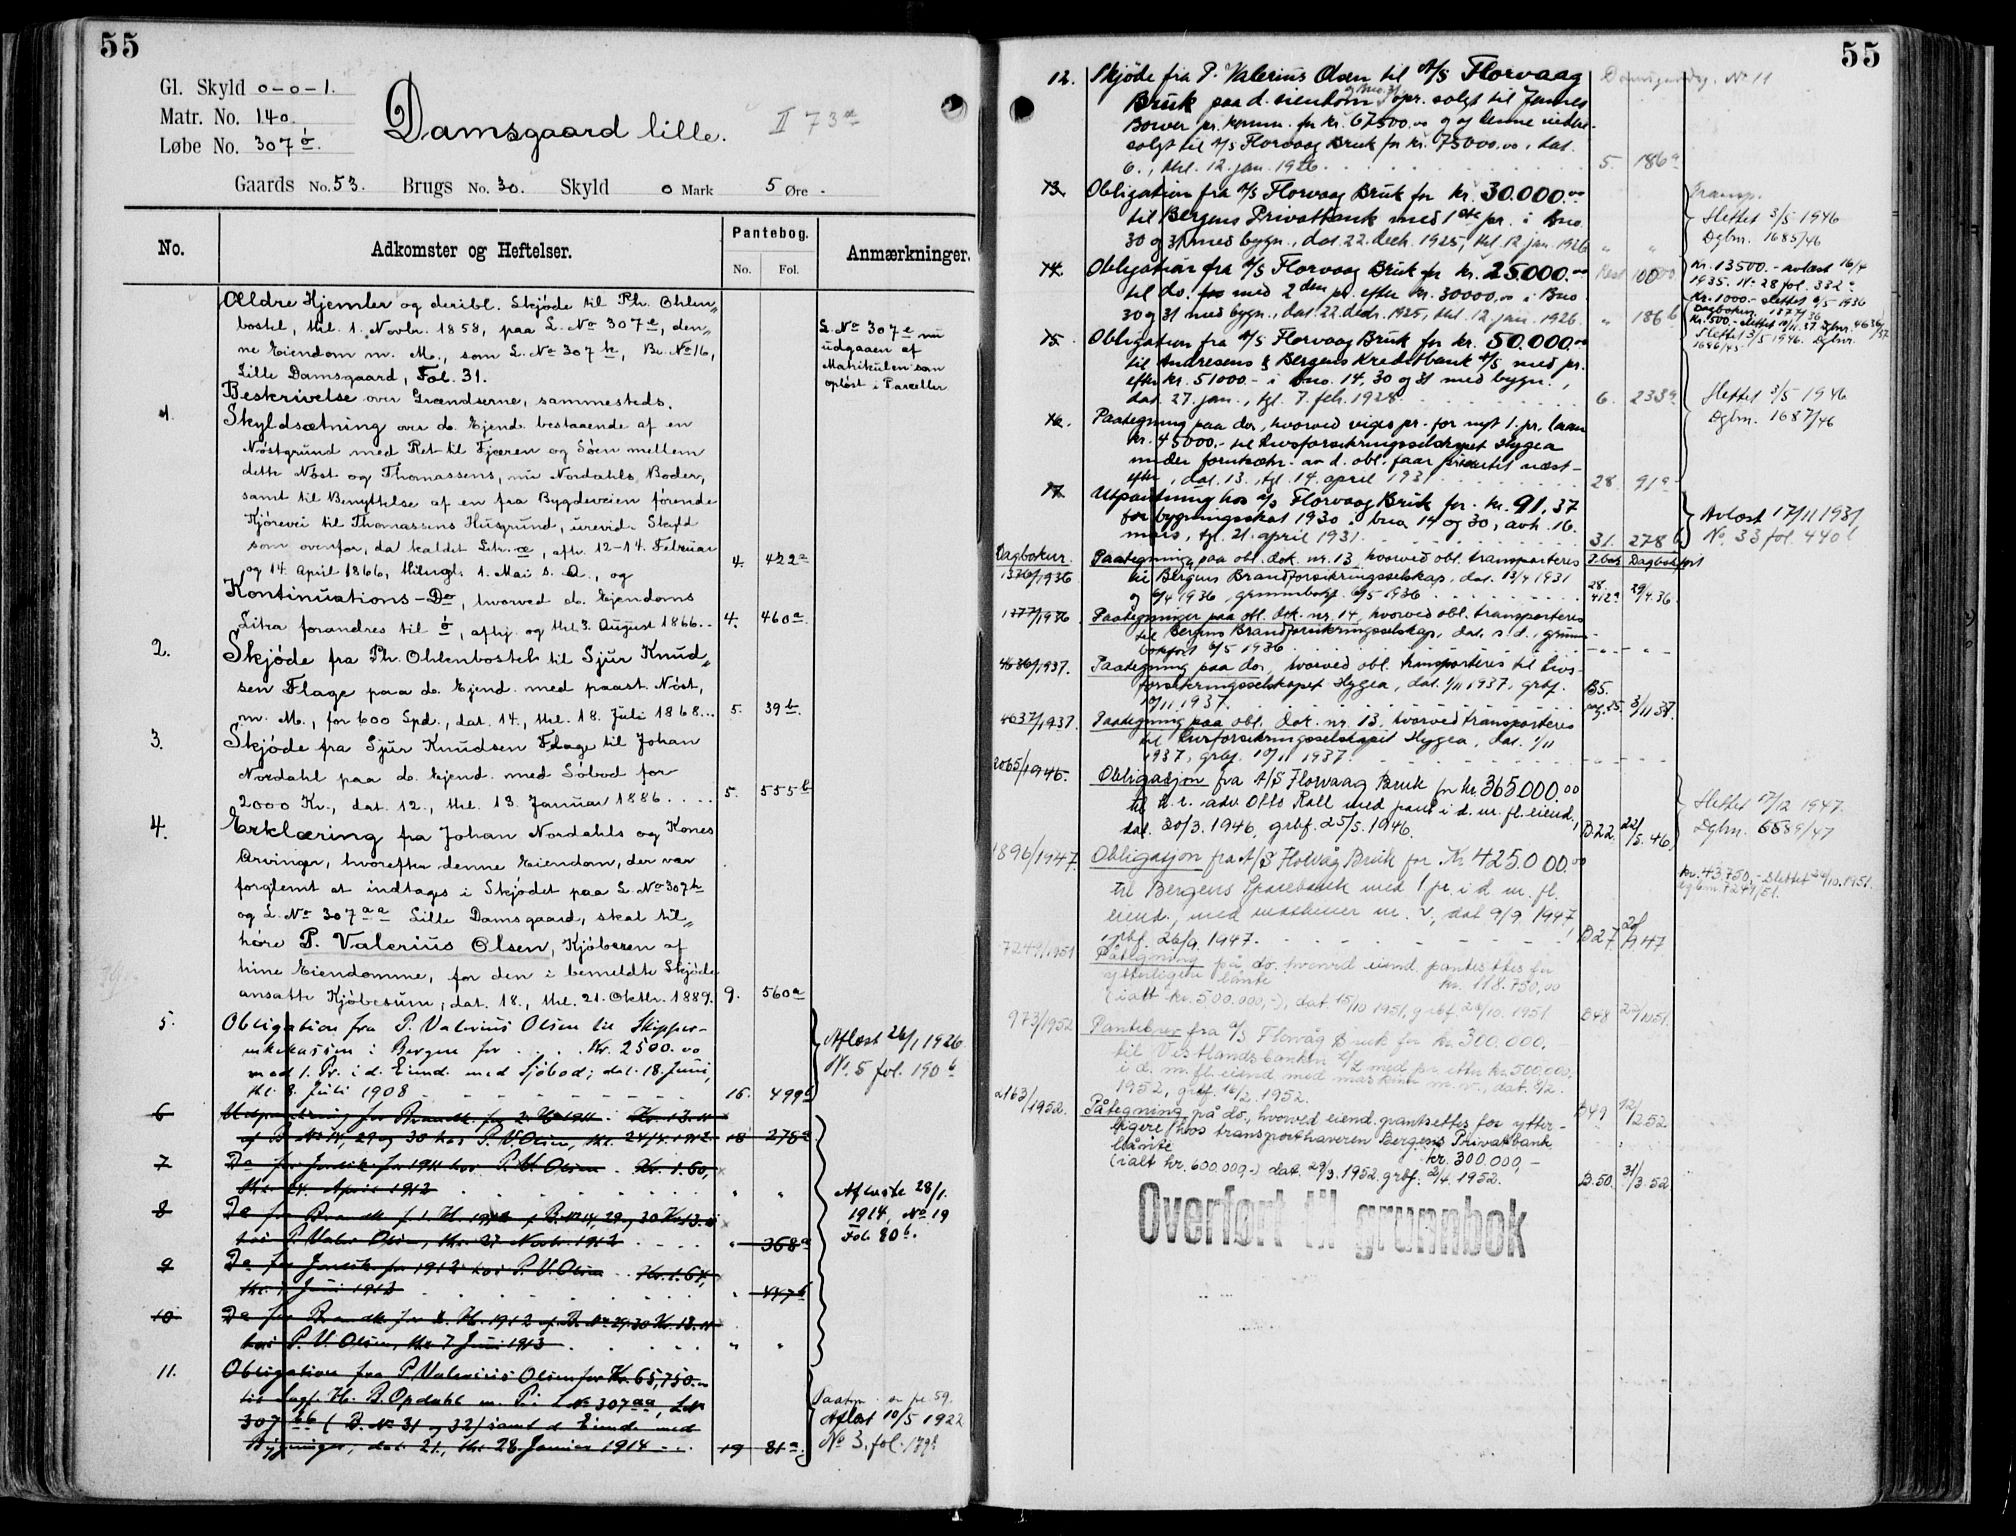 55
Gl. Skyld 0-0-1.
Matr. No. 140.
Løbe No. 307 ö.
Damsgaard lille.
II 73 a
Gaards No. 53. Brugs No. 30. Skyld 0 Mark 5 Øre.
No.
Adkomster og Heftelser.
Pantebog.
No. Fol.
Anmærkninger.
Ældre Hjemler og deribl. Skjøde til Ph. Ohlen„
bostel, thl. 1. Novbr. 1858, paa L. No 307 e, den„
ne Eiendom m. M., som L. No 307 h, Br. No 16,
Lille Damsgaard, Fol. 31.
L. No 307 e nu
udgaaen af
Matrikulen som
opløst i Parceller
Beskrivelse over Grændserne, sammesteds.
1. Skyldsætning over do. Ejend. bestaaende af en
Nøstgrund med Ret til Fjæren og Søen mellem
dette Nøst og Thomassens, nu Nordahls Boder,
samt til Benyttelse af en fra Bygdeveien førende
Kjørevei til Thomassens Husgrund, urevid. Skyld
som ovenfor, da kaldet Litr. æ, afh. 12-14. Februar
og 14. April 1866, thingl. 1. Mai s. A., og 4. 422 a
Kontinuations-Do, hvorved do. Ejendoms
Litra forandres til ö, afhj. og thl. 3. August 1866.. 4. 460 a
2. Skjøde fra Ph. Ohlenbostel til Sjur Knud„
sen Flage paa do. Ejend. med paast. Nøst,
m. M., for 600 Spd., dat. 14., thl. 18. Juli 1868... 5. 39 b.
3. Skjøde fra Sjur Knudsen Flage til Johan
Nordahl paa do. Ejend. med Søbod for
2000 Kr., dat. 12., thl. 13. Januar 1886.... 5. 555 b
4. Erklæring fra Johan Nordahls og Kones
Arvinger, hvorefter denne Eiendom, der var
forglemt at indtages i Skjødet paa L. No 307 h
og L. No 307 aa Lille Damsgaard, skal til„
høre P. Valerius Olsen, Kjøberen af
hine Eiendomme, for den i bemeldte Skjøde
ansatte Kjøbesum; dat. 18., thl. 21. Oktbr. 1889. 9. 560 a
5. Obligation fra P. Valerius Olsen til Skipper-
enkekassen i Bergen for .... Kr. 2500.00
med 1. Pr. i d. Eiend. med Sjøbod; dat. 18. Juni,
thl. 3. Juli 1908 16. 499 b
Aflæst 26/1 1926
No. 5 fol. 190 b
6 Udpantning for Brandk. for 2. H. 1911 Kr. 13.11
af B. No 14, 29 og 30 hos P. V. Olsen, thl. 24/4. 1912 18 278 a
7 Do for Jordsk. for 1911 hos P. V. Olsen. Kr. 1.60,
thl. 24. April 1912 " "
8 Do for Brandk. f. 1. H. 1912 af B. No 14, 29 og 30 Kr. 13.11
hos P. Valer. Olsen, thl. 27 Novbr. 1912 " 368 a
9 Do for Jordsk. for 1912 hos P. V. Olsen Kr. 1.64,
thl. 7 Juni 1913 " 447 b
10 Do for Brandk. for 2. H. 1912 af B. No 29. 30 Kr. 13.11
hos P. V. Olsen, thl. 7 Juni 1913 " "
Aflæste 28/1.
1914, No 19
Fol. 80 b.
11. Obligation fra P. Valerius Olsen for Kr. 65,750.00
til Sagf. H. B. Opdahl m. Pr. i L No 307 aa, L No
307 bb (B. No 31 og 32) samt d. Eiend. med
Bygninger, dat. 21., thl. 28. Januar 1914 19 81 a.
Aflæst 10/5 1922
No 3. fol. 179 b
55
Damsgaardsg. No 11
12. Skjøde fra P. Valerius Olsen til A/S Florvaag
Bruk paa d. eiendom og Bno. 31, opr. solgt til Jennes
Borver pr. komm. for kr. 67500.00 og av denne videre-
solgt til A/S Florvaag Bruk for kr. 75000.00, dat.
6., thl. 12. jan. 1926 5 186 a
13. Obligation fra A/S Florvaag Bruk for kr. 30.000.00
til Bergens Privatbank med 1ste pr. i bno
30 og 31 med bygn., dat. 22. decb. 1925, thl. 12 jan. 1926 " "
Transp.
Slettet 3/5 1946
Dgbnr. 1685/46
14. Obligation fra A/S Florvaag Bruk for kr. 25.000.00
til do. med 2den pr. efter kr. 30000,00 i Bno
30 og 31 med bygn., dat. 22. decbr. 1925, thl. 12 jan. 1926. " 186 b
Rest 10000
Kr. 13500.- avlæst 16/4
1935. N. 28 fol. 332 a
Kr. 1000.- slettet 6/5 1936
Dagboknr. 1377/36
Kr. 500.- slettet 10/11. 37. Dgbnr. 4636/37.
Slettet 3/5 1946. Dgbnr.
1686/45
15. Obligation fra A/S Florvaag Bruk for kr. 50.000.00
til Andresens & Bergens Kreditbank A/S med pr.
efter kr. 51000.- i bno. 14, 30 og 31 med bygn.,
dat. 27. jan., tgl. 7. feb. 1928 6. 233 a
Slettet 3/5 1946
Dgbnr. 1687/46
16. Paategning paa do., hvorved viges pr. for nyt 1. pr. laan
kr. 45000.- til Livsforsikringsselskapet Hygea
under forutsætn. av d. obl. faar prioritet næst-
efter, dat. 13., tgl. 14. april 1931 28. 91 a
17. Utpantning hos A/S Florvaag Bruk for kr. 91,37
for bygningsskat 1930 i bno 14 og 30, avh. 16.
mars, tgl. 21. april 1931. 31. 278 b
Avlæst 17/11 1931
No. 33 fol. 440 b
Dagboknr. Paategning paa obl. dok. nr. 13, hvorved obl. transporteres P.bok Dagbokført
1376/1936 til Bergens Brandforsikringsselskap, dat. 13/4 1931
og 6/4 1936, grunnbokf. 6/5 1936 28. 412 a 29/4.36.
1377/1936 Paategninger paa obl. dok. nr. 14, hvorved obl. transporteres
til Bergens Brandforsikringsselskap, dat. s. d., grunn-
bokført 6/5 1936
4636/1937. Paategning paa do., hvorved obl. transporteres til Livs-
forsikringsselskapet Hygea, dat. 1/11 1937, grbf.
10/11 1937. B5. pag. 25. 3/11 37.
4637/1937. Paategning paa obl. dok. nr. 13, hvorved transporteres
til Livsforsikringsselskapet Hygea, dat. 1/11
1937, grbf. 10/11 1937.
2065/1946. Obligasjon fra A/S Florvaag Bruk for kr 365.000.00
til h. r. adv Otto Rall med pant i d. m. fl. eiend.,
dat. 30/3. 1946, grbf. 25/5. 1946. B22. 22/5. 46.
Slettet 17/12 1947.
Dgbnr. 6589/47
1896/1947. Obligasjon fra A/S Florvåg Bruk for Kr 425000.00
til Bergens Sparebank med 1 pr. i d m. fl.
eiend., med maskiner m. v., dat 9/9 1947,
grbf. 26/9. 1947. B27.
Kr. 43.750,- slettet 24/10. 1951.
Dgbnr. 7247/51.
7249/1951 Påtegning på do. hvorved eiend. pantsettes for
ytterligere lånte kr. 118.750,00
(ialt kr. 500.000,-), dat 15/10 1951, grbf. 24/10. 1951. B48
973/1952 Pantebrev fra A/S Florvåg Bruk for kr. 300.000.
til Vestlandsbanken A/L med pr. etter kr. 500.000.
i d. m. fl. eiend. med maskiner m. v., dat. 8/2.
1952, grbf. 16/2. 1952. B49 12/2. 52
2163/1952. Påtegning på do., hvorved eiend. pantsettes for ytter-
ligere hos transporthaveren Bergens Privatbank
lånte kr. 300.000,-
(ialt kr. 600.000,-) dat. 29/3. 1952, grbf. 2/4. 1952. B.50. 31/3.52
Overført til grunnbok